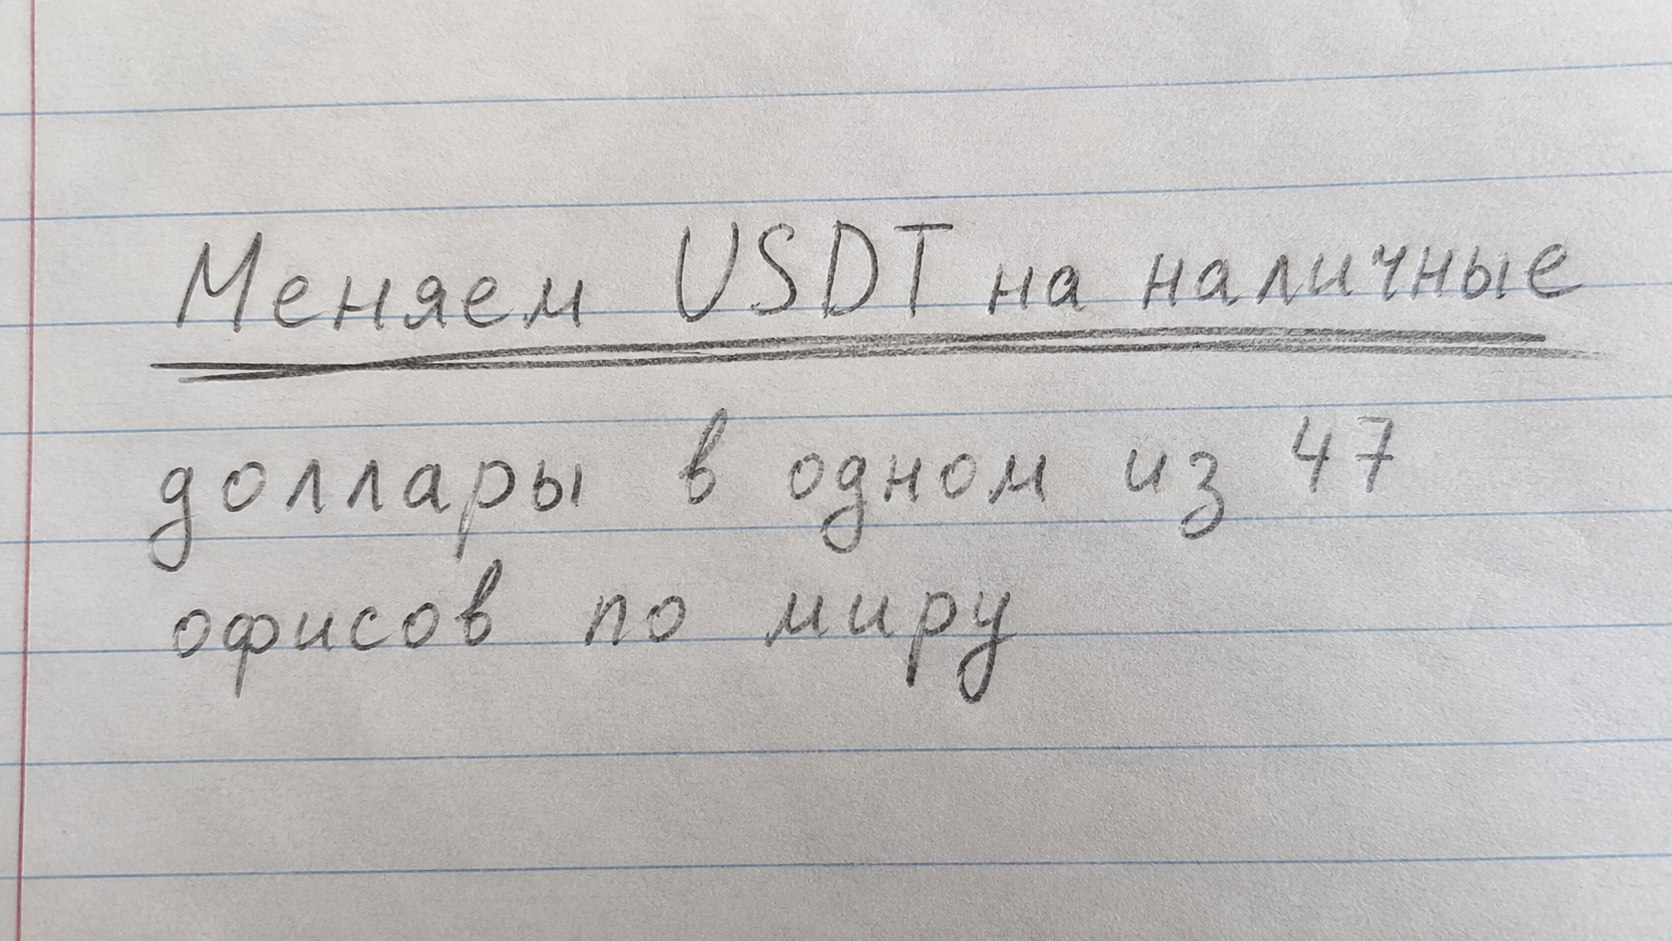 Меняем USDT на наличные
доллары в одном из 47
офисов по миру